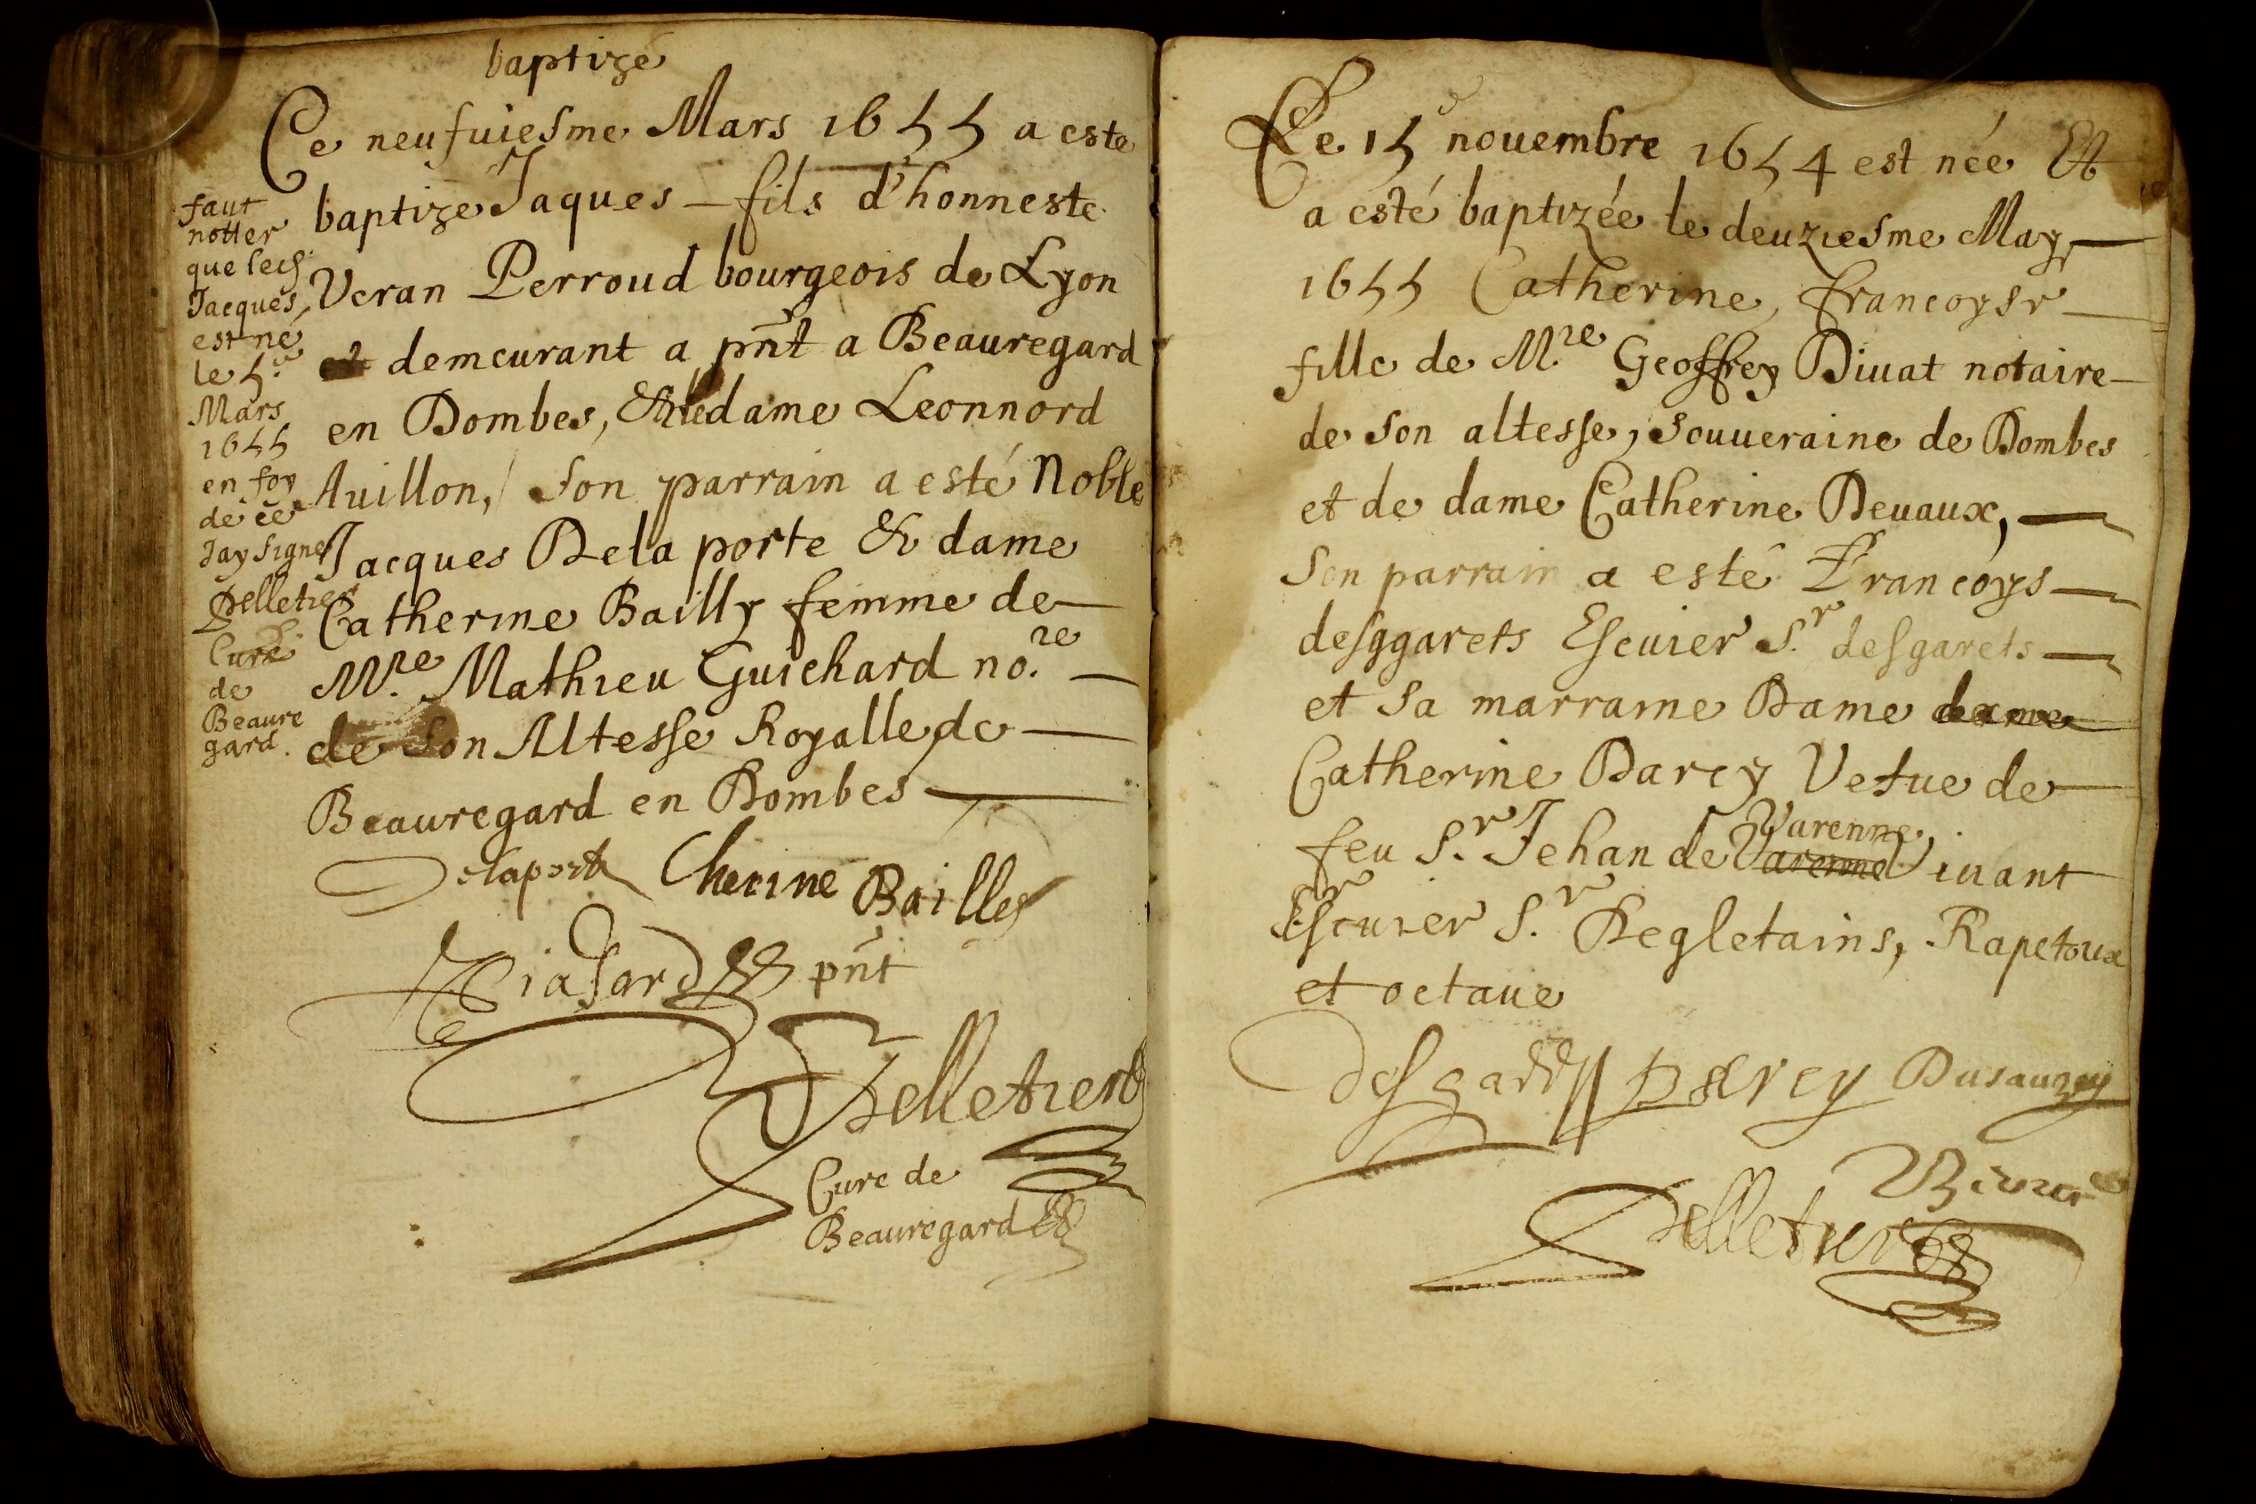 baptizé
Ce neufuiesme Mars 1655 a este
baptize Jaques fils d'honneste
Veran Perroud bourgeois de Lyon
et demeurant a pñt a Beauregard
en Dombes, & dame Leonnord
Auillon, Son parrain a esté Noble
Jacques Dela porte & dame
Catherine Bailly femme de
M.re Mathieu Guichard no.re
de Son Altesse Royalle de
Beauregard en Dombes
faut
notter
que led.
Jacques
est né
le 5.e
Mars
1655
en foy
de ce
Jay Signé
Pelletier
Curé
de
Beaure
gard.
Delaporte Cherine Bailley
pñt
Pelletier
Cure de
Beauregard
Le 15e nouembre 1654 est née Et
a esté baptizée le deuziesme May
1655 Catherine, francoyse
fille de M.re Geoffrey Diuat notaire
de Son altesse, Souueraine de Dombes
et de dame Catherine Deuaux,
Son parrain a esté Francoys
desggarets Escuier S.r desgarets
et Sa marraine Dame dame
Catherine Darcy Vefue de
feu S.r Jehan de Varenne Varenne Viuant
Escuier S.r Degletains, Rapetoux
et octaue
Darcy Dusauzey
Pelletier